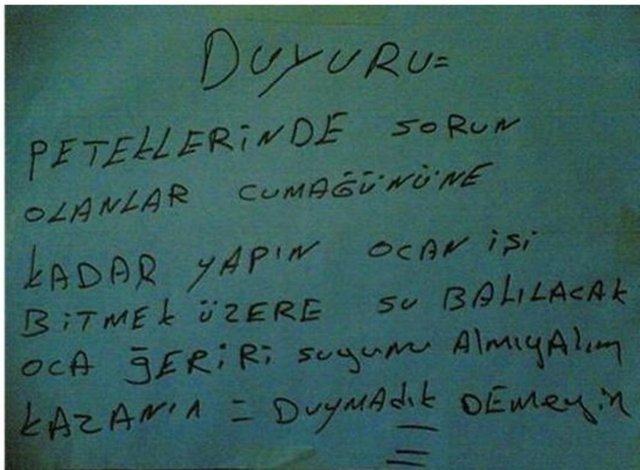 DUYURU=
PETEKLERİNDE SORUN
OLANLAR CUMAĞÜNÜNE
KADAR YAPIN OCAN işi
BİTMEK ÜZERE SU BALILACAK
OCA ĞERİRİ suyunu AlmıyAlım
KAZANIN = DuyMAdık DEmeyin